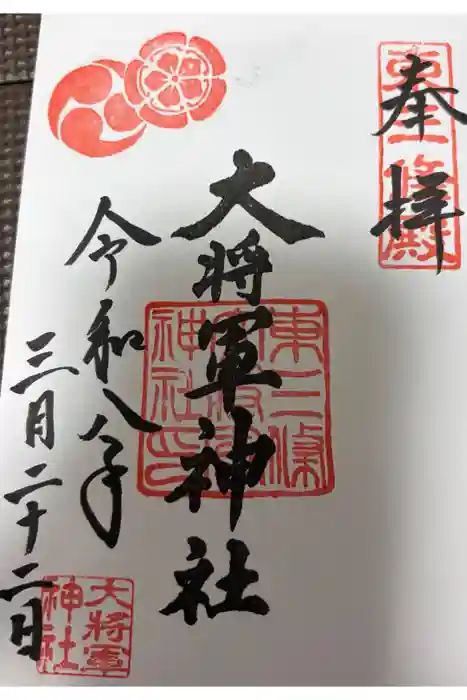 奉拝
東三條殿
大将軍神社
東三條大将軍神社印
令和八年
三月二十二日
大将軍神社